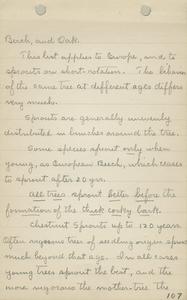 Beech, and Oak.
This last applies to Europe, and to
sprouts on short-rotation. The behavior
of the same tree at different ages differs
very much.
Sprouts are generally unevenly
distributed in bunches around the tree.
Some species sprout only when
young, as European Beech, which ceases
to sprout after 20 yrs.
All trees sprout better before the
formation of the thick corky bark.
Chestnut Sprouts up to 120 years.
Often vigorous trees of seedling origin sprout
much beyond that age. In all cases
young trees sprout the best, and the
more vigorous the mother-tree. The
107